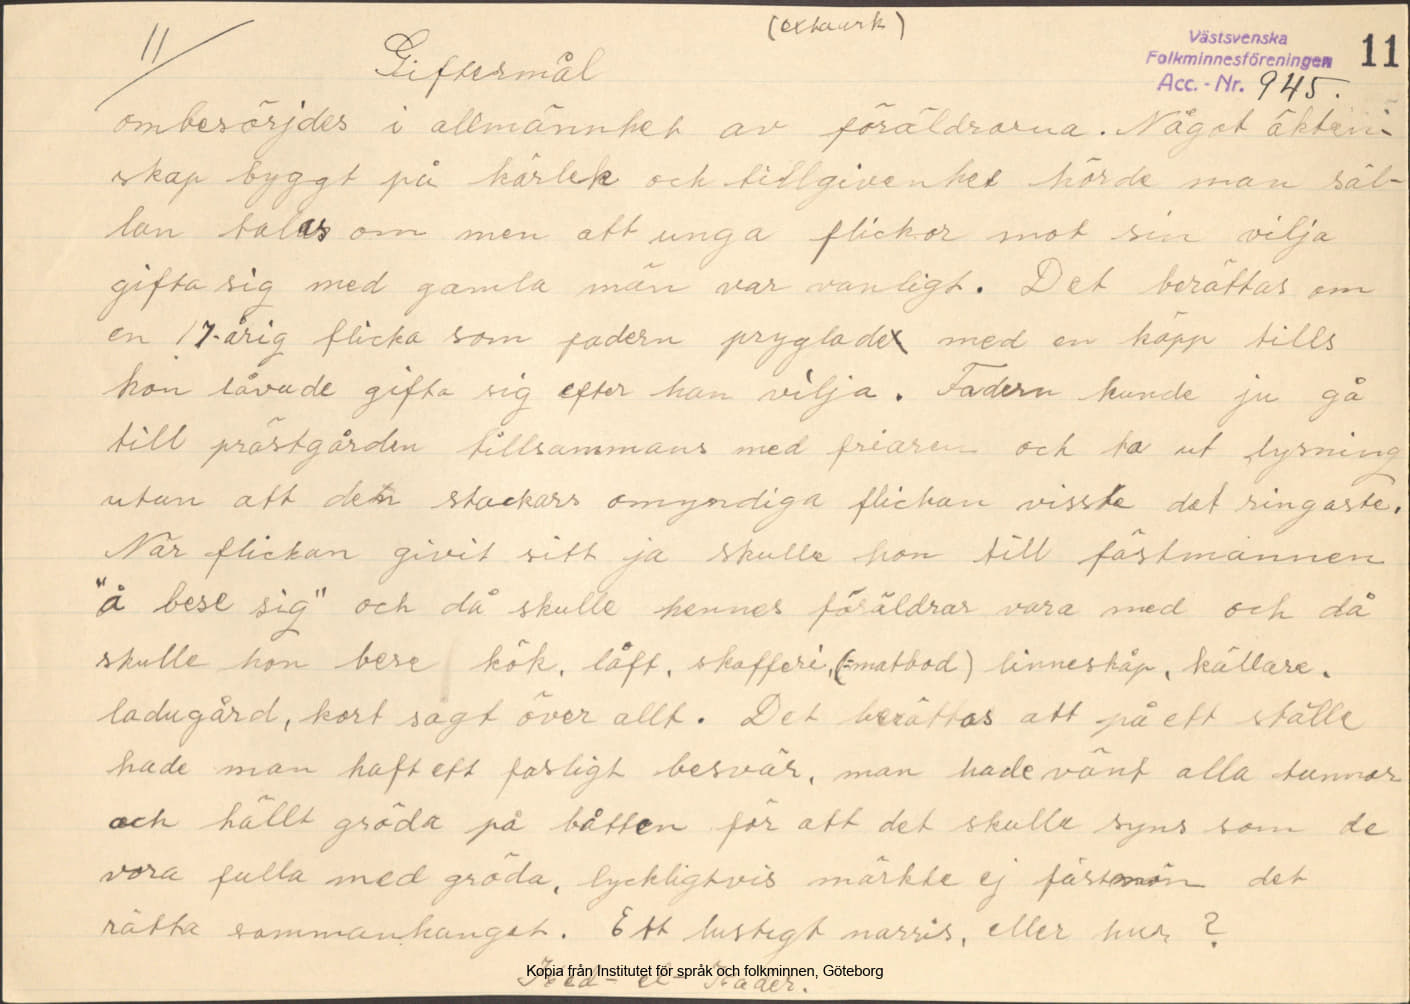 11
Giftermål
Västsvenska
Folkminnesföreningen
Acc. - Nr. 945.
11
ombesörjdes i allmännhet av föräldrarna. Något äkten-
skap byggt på kärlek och tillgivenhet hörde man säl-
lan talas om men att unga flickor mot sin vilja
gifta sig med gamla män var vanligt. Det berättas om
en 17-årig flicka som fadern pryglade med en käpp tills
hon låvade gifta sig efter han vilja. Fadern kunde ju gå
till prästgården tillsammans med friaren och ta ut lysning
utan att den stackars omyndiga flickan visste det ringaste.
När flickan givit sitt ja skulle hon till fästmannen
"å bese sig" och då skulle hennes föräldrar vara med och då
skulle hon bese kök, låft, skafferi, (=matbod) linneskåp, källare,
ladugård, kort sagt över allt. Det berättas att på ett ställe
hade man haft ett farligt besvär, man hade vänt alla tunnor
och hällt gröda på båtten för att det skulle syns som de
vora fulla med gröda, lyckligtvis märkte ej fästmön det
rätta sammanhanget. Ett lustigt narris, eller hur?
Kopia från Institutet för språk och folkminnen, Göteborg